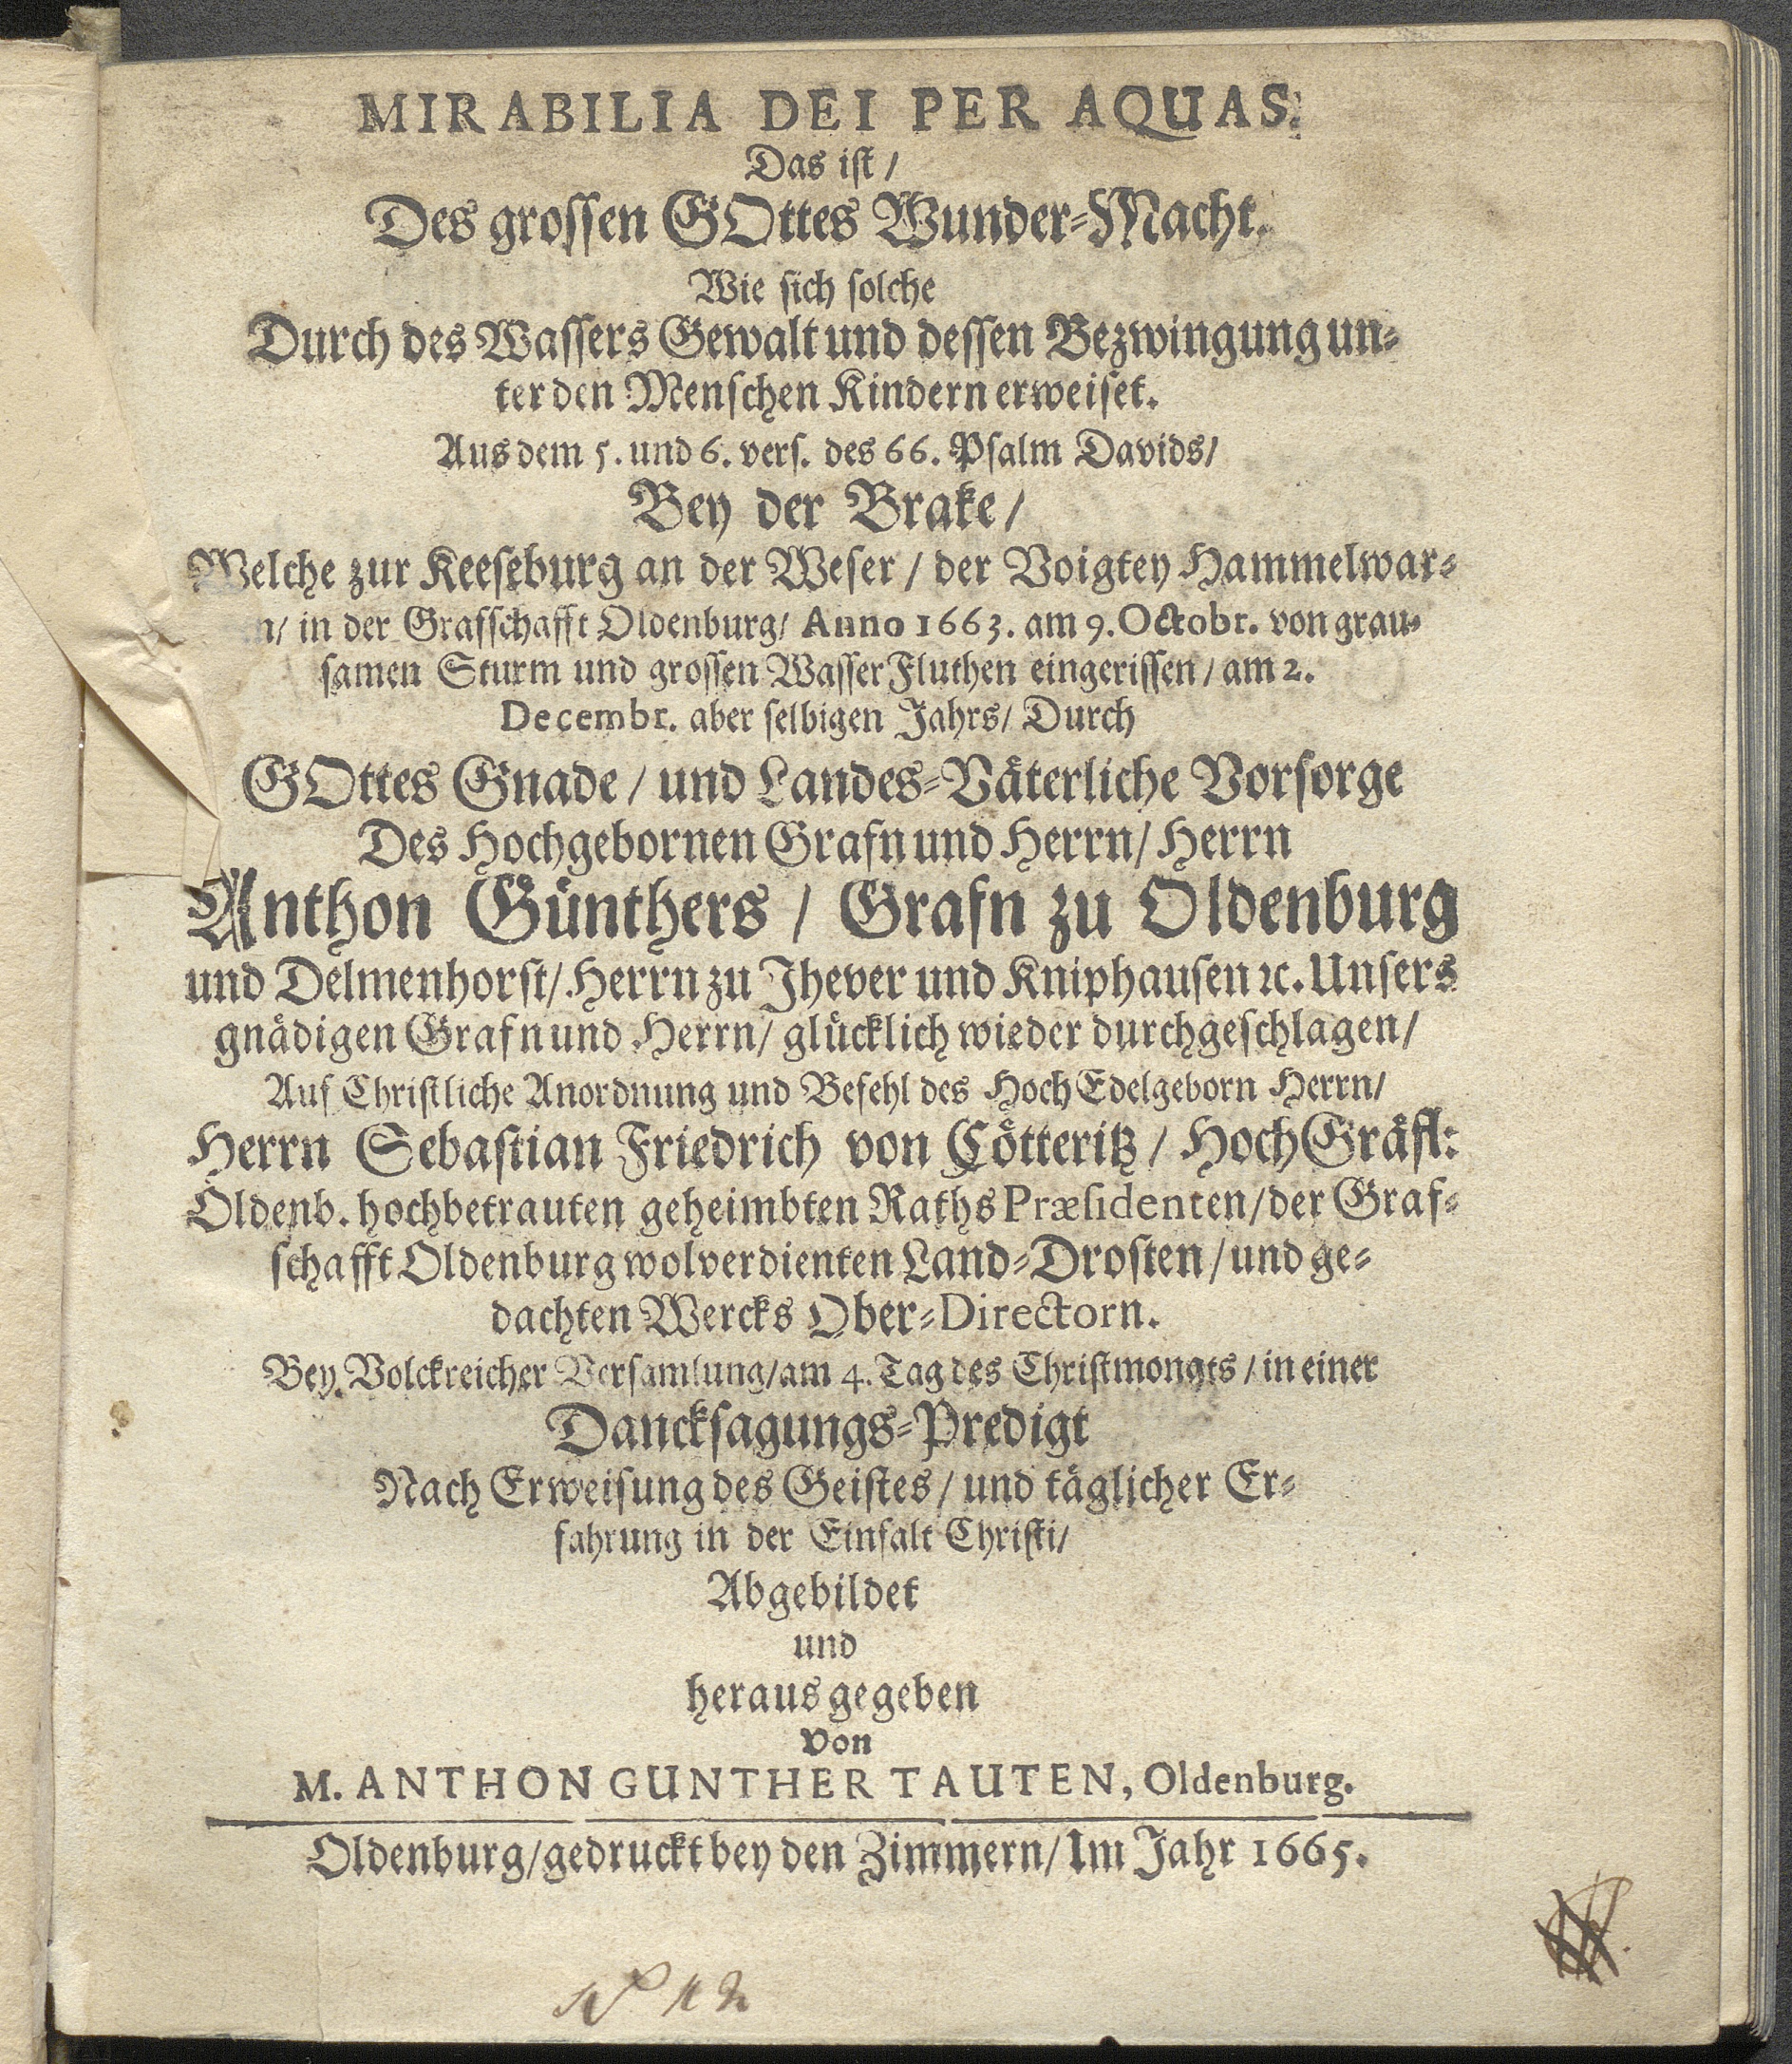 MIRABILIA DEI PER AQUAS.
Das ist /
Des grossen GOttes Wunder-Macht.
Wie sich solche
Durch des Wassers Gewalt und dessen Bezwingung un-
ter den Menschen Kindern erweiset.
Aus dem 5. und 6. vers. des 66. Psalm Davids /
Bey der Brake /
Welche zur Keeseburg an der Weser / der Voigtey Hammelwar-
n / in der Grafschafft Oldenburg / Anno 1663. am 9. Octobr. von grau-
samen Sturm und grossen Wasser Fluthen eingerissen / am 2.
Decembr. aber selbigen Jahrs / Durch
GOttes Gnade / und Landes-Väterliche Vorsorge
Des Hochgebornen Grafn und Herrn / Herrn
Anthon Günthers / Grafn zu Oldenburg
und Delmenhorst / Herrn zu Jhever und Kniphausen ꝛc. Unsers
gnädigen Grafn und Herrn / glücklich wieder durchgeschlagen /
Auf Christliche Anordnung und Befehl des Hoch Edelgeborn Herrn /
Herrn Sebastian Friedrich von Cötteritz / Hoch Gräfl:
Oldenb. hochbetrauten geheimbten Raths Præsidenten / der Graf-
schafft Oldenburg wolverdienten Land-Drosten / und ge-
dachten Wercks Ober-Directorn.
Bey Volckreicher Versamlung / am 4. Tag des Christmonats / in einer
Dancksagungs-Predigt
Nach Erweisung des Geistes / und täglicher Er-
fahrung in der Einfalt Christi /
Abgebildet
und
heraus gegeben
von
M. ANTHON GUNTHER TAUTEN, Oldenburg.
Oldenburg / gedruckt bey den Zimmern / Im Jahr 1665.